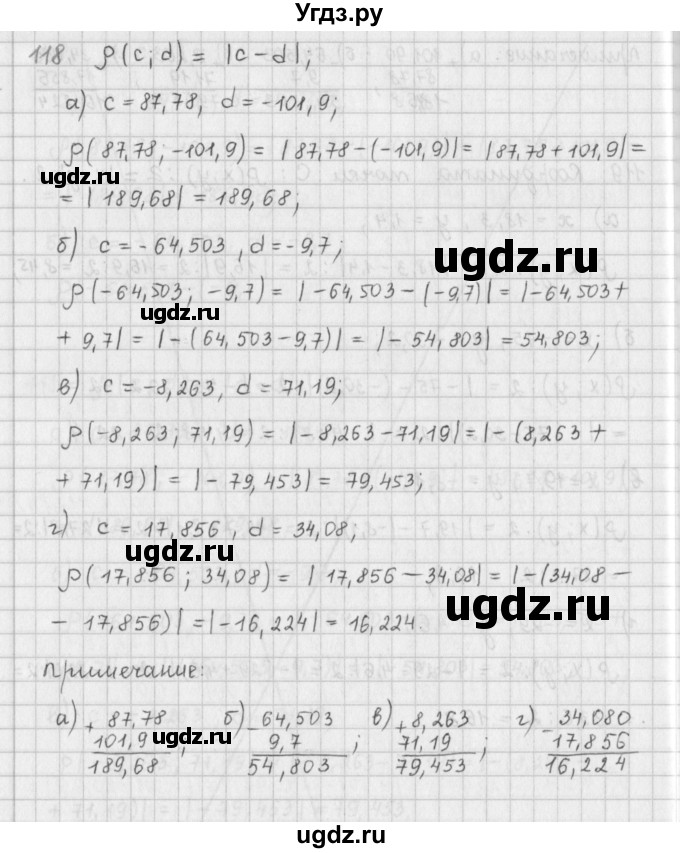 Угдз.ру
118 ρ(c; d) = |c − d|;
а) c = 87,78, d = −101,9;
ρ(87,78; −101,9) = |87,78 − (−101,9)| = |87,78 + 101,9| =
= |189,68| = 189,68;
б) c = −64,503, d = −9,7;
ρ(−64,503; −9,7) = |−64,503 − (−9,7)| = |−64,503 +
+ 9,7| = |−(64,503 − 9,7)| = |−54,803| = 54,803;
в) c = −8,263, d = 71,19;
ρ(−8,263; 71,19) = |−8,263 − 71,19| = |−(8,263 +
+ 71,19)| = |−79,453| = 79,453;
г) c = 17,856, d = 34,08;
ρ(17,856; 34,08) = |17,856 − 34,08| = |−(34,08 −
− 17,856)| = |−16,224| = 16,224.
Примечание:
а) + 87,78 б) − 64,503 в) + 8,263 г) − 34,080
101,9 9,7 71,19 17,856
189,68 ; 54,803 ; 79,453 ; 16,224
ugdz.ru
ugdz.ru
ugdz.ru
ugdz.ru
ugdz.ru
ugdz.ru
ugdz.ru
ugdz.ru
ugdz.ru